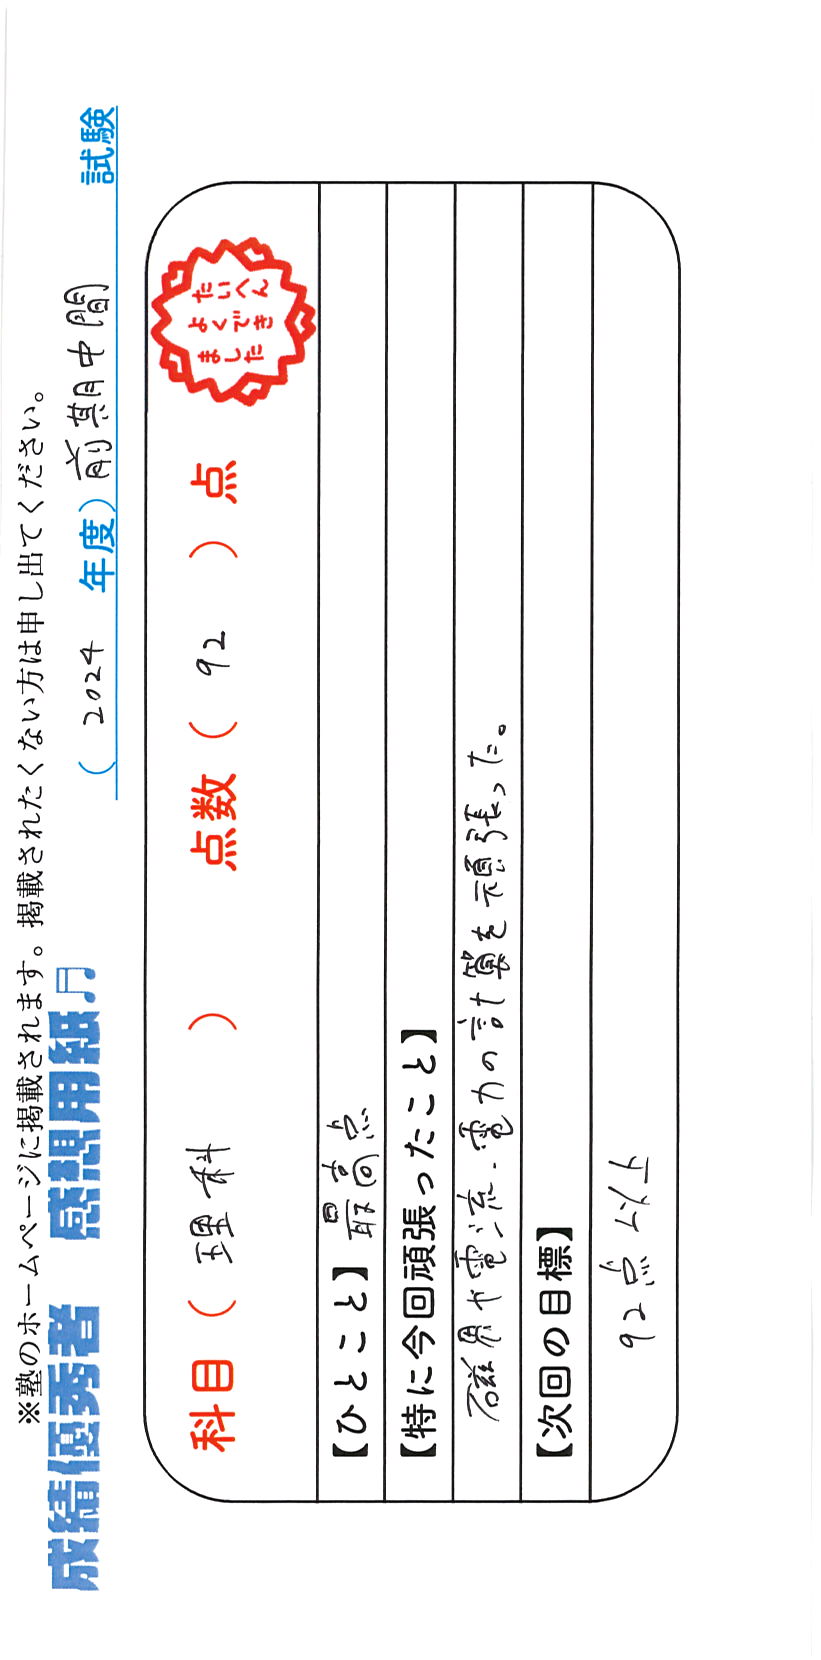 ※塾のホームページに掲載されます。掲載されたくない方は申し出てください。
成績優秀者 感想用紙♫ ( 2024 年度) 前期中間 試験
科目 ( 理科 ) 点数 ( 92 ) 点
たいへん
よくでき
ました
【ひとこと】 最高点
【特に今回頑張ったこと】
磁界や電流、電力の計算を頑張った。
【次回の目標】
92点以上